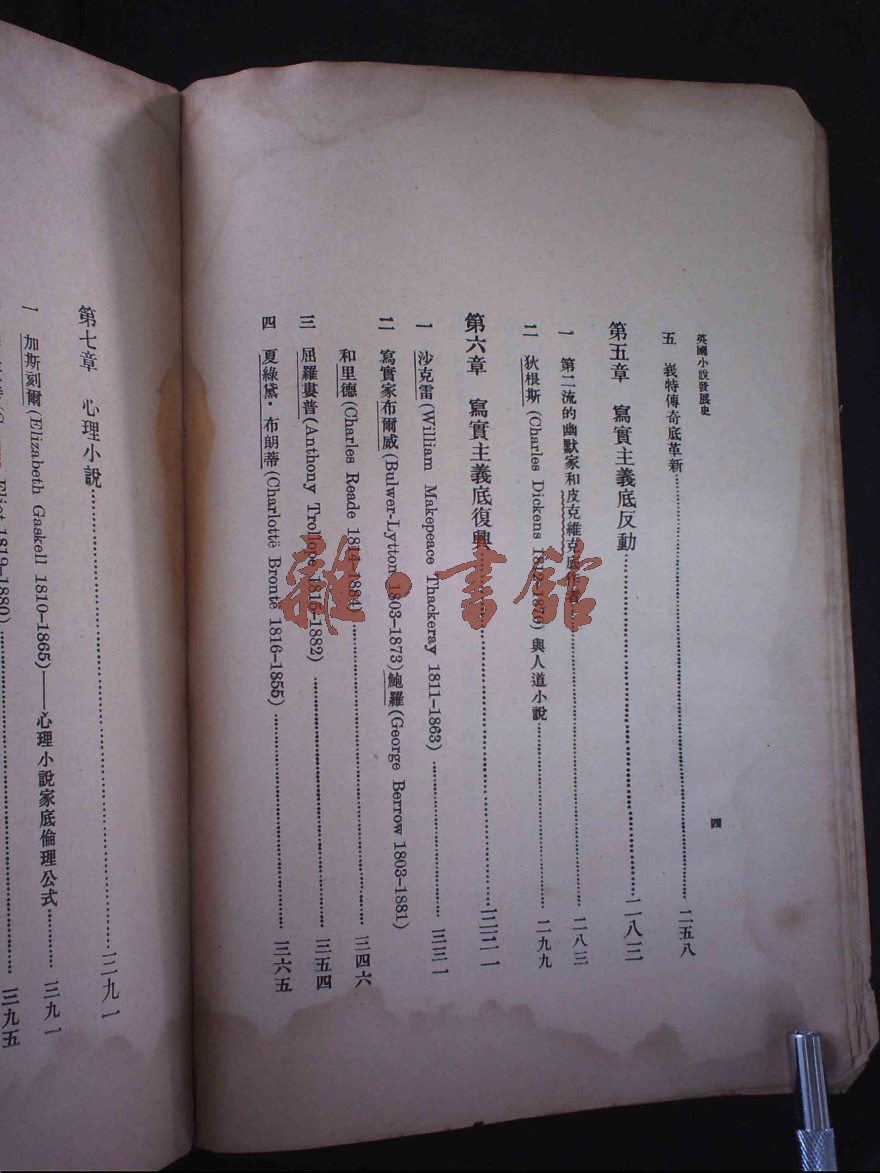 英國小說發展史
四
五 峩特傳奇底革新 二五八
第五章 寫實主義底反動 二八三
一 第二流的幽默家和皮克維克 二八三
二 狄根斯(Charles Dickens 1812–1870)與人道小說 二九九
第六章 寫實主義底復興
一 沙克雷(William Makepeace Thackeray 1811–1863) 三三一
二 寫實家布爾威(Bulwer-Lytton 1803–1873)鮑羅(George Berrow 1803–1881)
和里德(Charles Reade 1814–1884) 三四六
三 屈羅婁普(Anthony Trollope 1815–1882) 三五四
四 夏綠黛·布朗蒂(Charlottë Brontë 1816–1855) 三六五
第七章 心理小說 三九一
一 加斯刻爾(Elizabeth Gaskell 1810–1865)——心理小說家底倫理公式 三九一
Eliot 1819–1880) 三九五
雜·書館